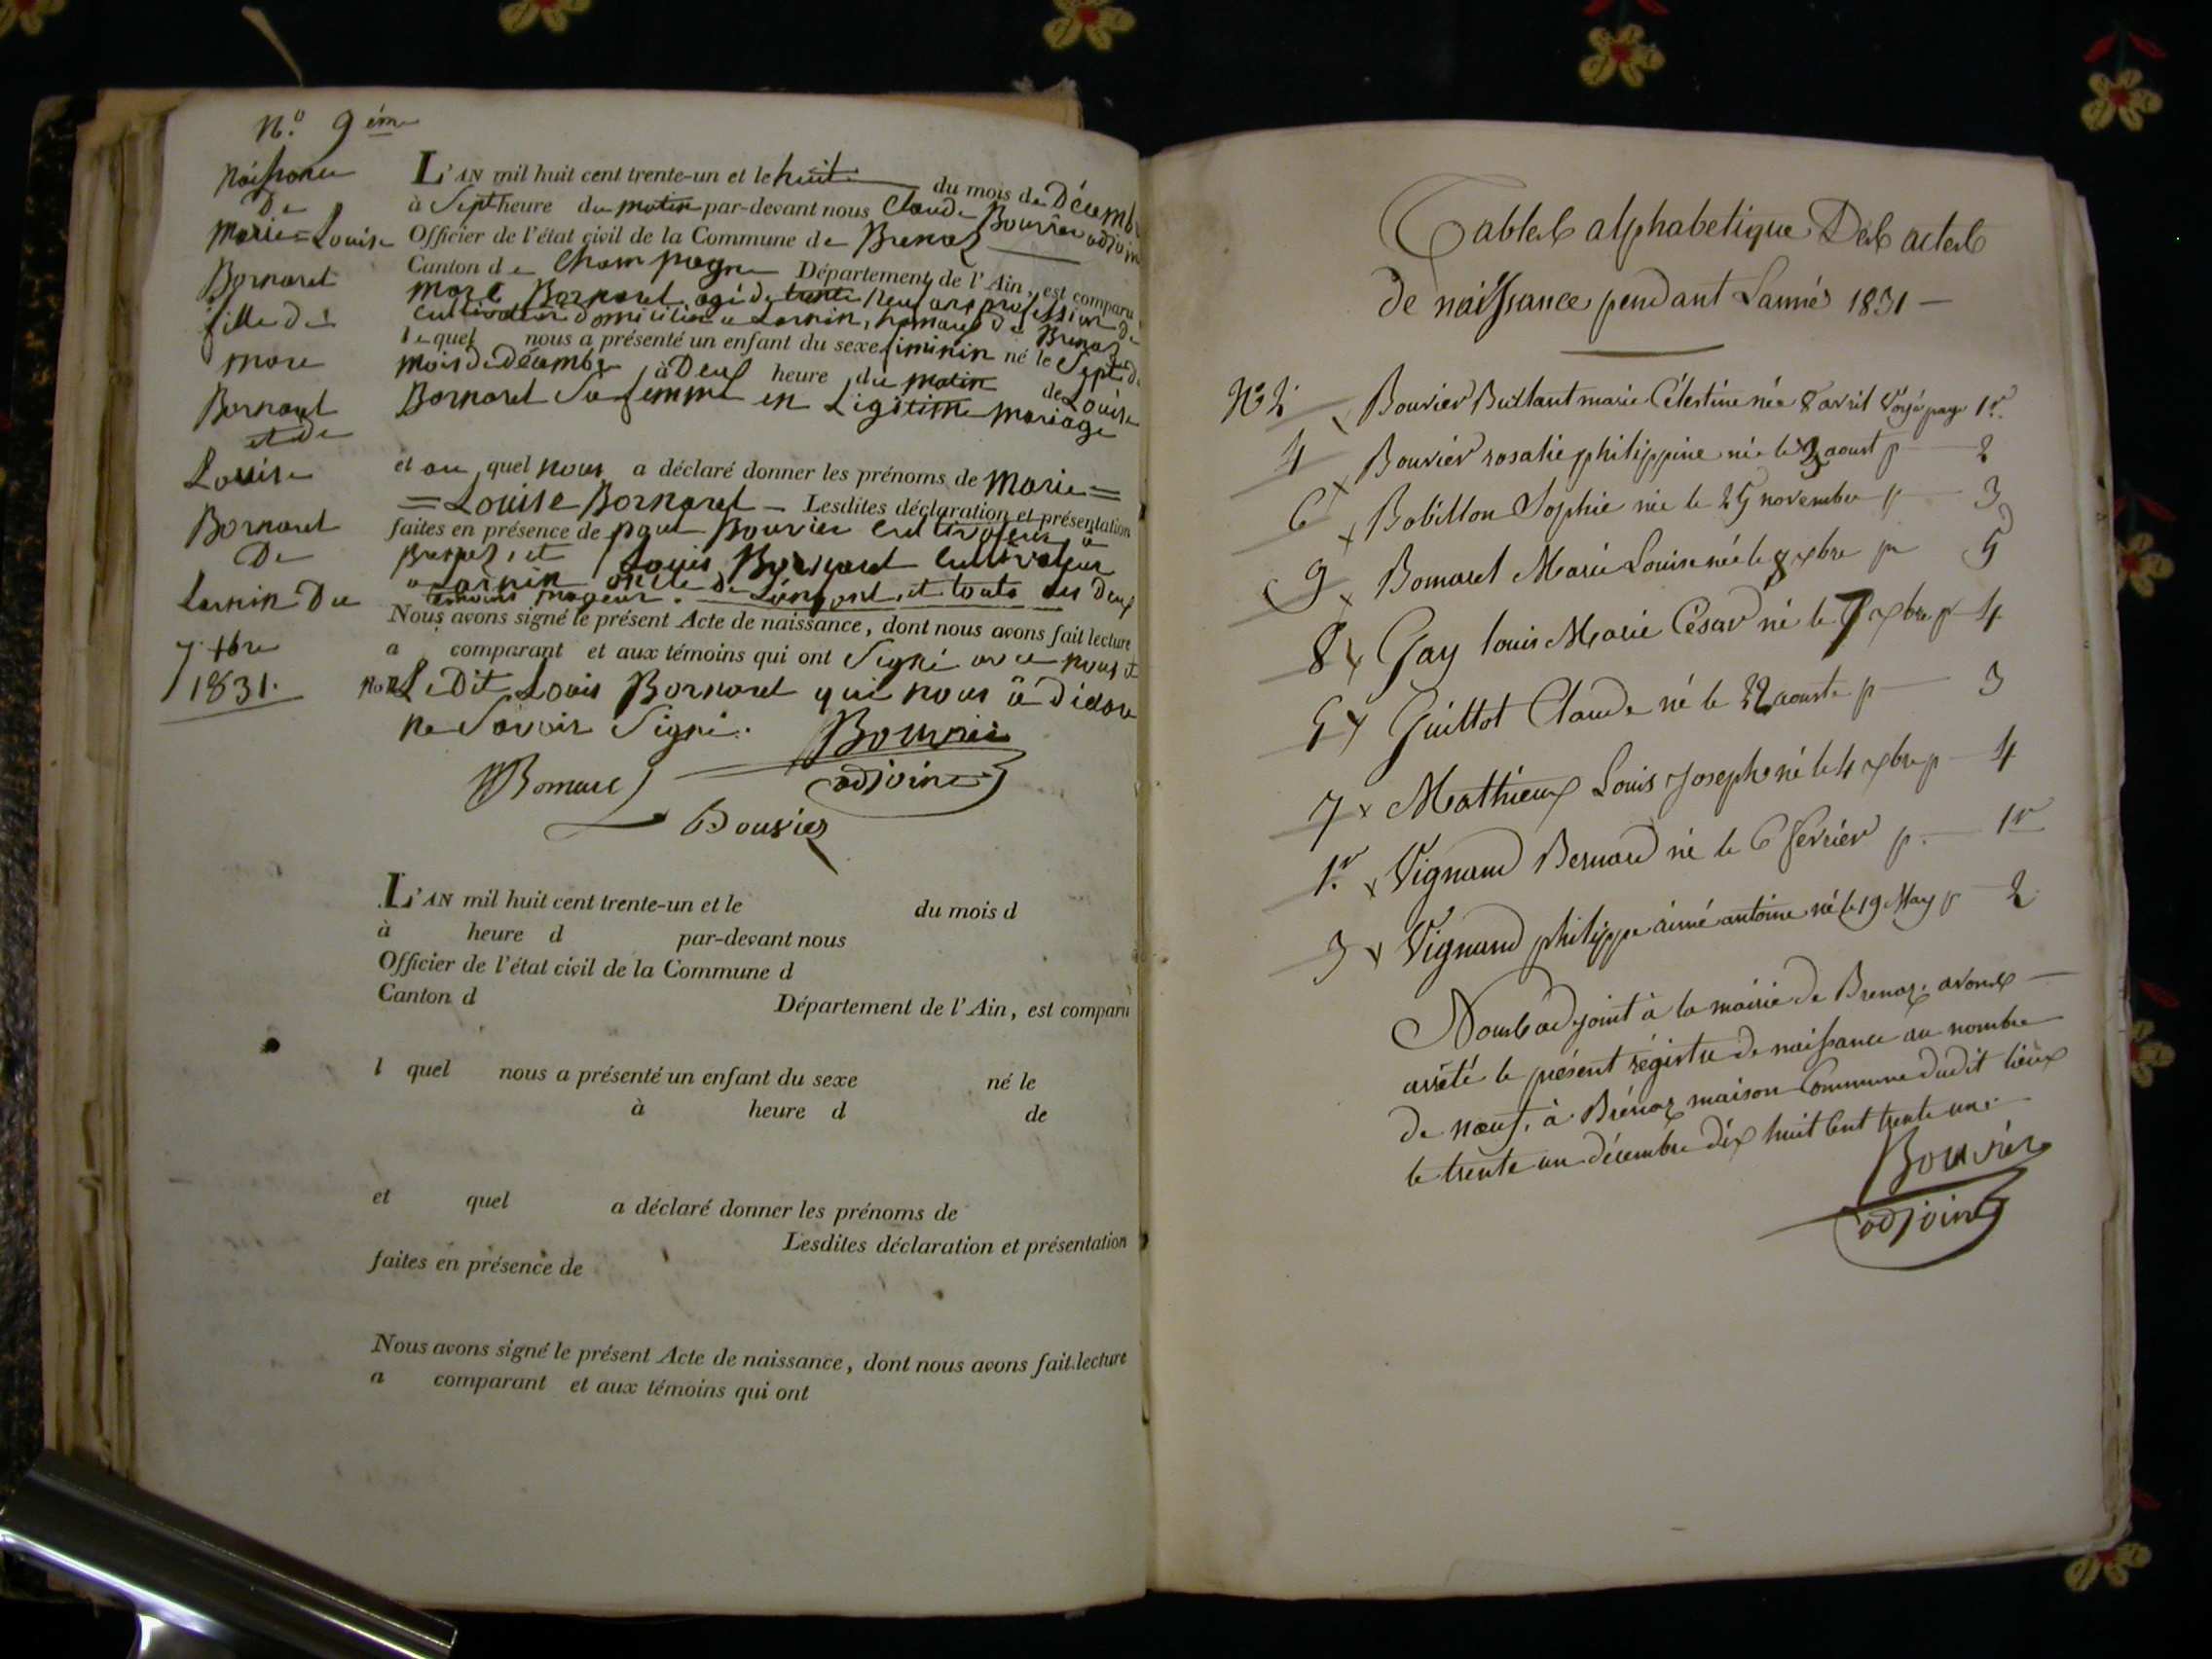 N.o 9 éme
Naissance
De
Marie=Louise
Bornaret
fille de
Marc
Bornaret
et de
Louise
Bornaret
De
Larnin Du
7 xbre
1831.
L'AN mil huit cent trente-un et le huit du mois de Décembre
à Sept heure du matin par-devant nous Claude Bouvier adjoint
Officier de l'état civil de la Commune de Brenaz
Canton de Champagne Département de l'Ain, est comparu
Marc Bornaret agé de trente neuf ans profession de
Cultivateur domicilié a Larnin, hamaux de Brenaz
lequel nous a présenté un enfant du sexe féminin né le Sept du
mois de décembre à Deux heure du matin de Louise
Bornaret Sa femme en Légitime mariage
et au quel nous a déclaré donner les prénoms de Marie=
=Louise Bornaret — Lesdites déclaration et présentation
faites en présence de paul Bouvier Cultivateur à
Brenaz, et Louis Bornaret Cultivateur
a Larnin oncle de L'enfant, et touts les deux
témoins mageur.
Nous avons signé le présent Acte de naissance, dont nous avons fait lecture
a comparant et aux témoins qui ont Signé avec nous et
non Le Dit Louis Bornaret qui nous à déclaré
ne Savoir Signé.
Bouvier
adjoint
MBornare
Bouvier
L'AN mil huit cent trente-un et le du mois d
à heure d par-devant nous
Officier de l'état civil de la Commune d
Canton d Département de l'Ain, est comparu
l quel nous a présenté un enfant du sexe né le
à heure d de
et quel a déclaré donner les prénoms de
Lesdites déclaration et présentation
faites en présence de
Nous avons signé le présent Acte de naissance, dont nous avons fait lecture
a comparant et aux témoins qui ont
Tables alphabetique Des actes
de naissance pendant L'anné 1831 —
No 2 Bouvier Buttant marie Célestine née 8 avril Voyé page 1r.
4 Bouvier rosalie philippine née le 2 aoust p 2
6 Bobillon Sophie née le 25 novembre p 3
9 Bornaret Marie Louise née le 8 xbre p 5
8 Gay louis Marie César né le 7 xbre p 4
5 Guittot Claude né le 22 aoust p 3
7 Mathieux Louis Joseph né le 4 xbre p 4
1.r Vignand Bernard né le 6 fevrier p. 1r
3 Vignand philippe aimé antoine né le 19 May p 2
Nous adjoint à la mairie de Brenaz, avons
arrêté le présent régistre de naissance au nombre
de nœuf, à Brénaz maison Commune dudit lieux
le trente un décembre dix huit Cent trente une.
Bouvier
adjoint